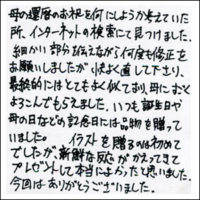 母の還暦のお祝を何にしようか考えていた
所、インターネットの検索にて見つけました。
細かい部分は伝えながら何度も修正を
お願いしましたが快よく直して下さり、
最終的にはとてもよく似ており、母にもよく
よろこんでもらえました。いつも誕生日や
母の日などの記念日には品物を贈って
いました。 イラストを贈るのは初めて
でしたが、新鮮な反応がかえってきて
プレゼントして本当によかったと思いました。
今回はありがとうございました。